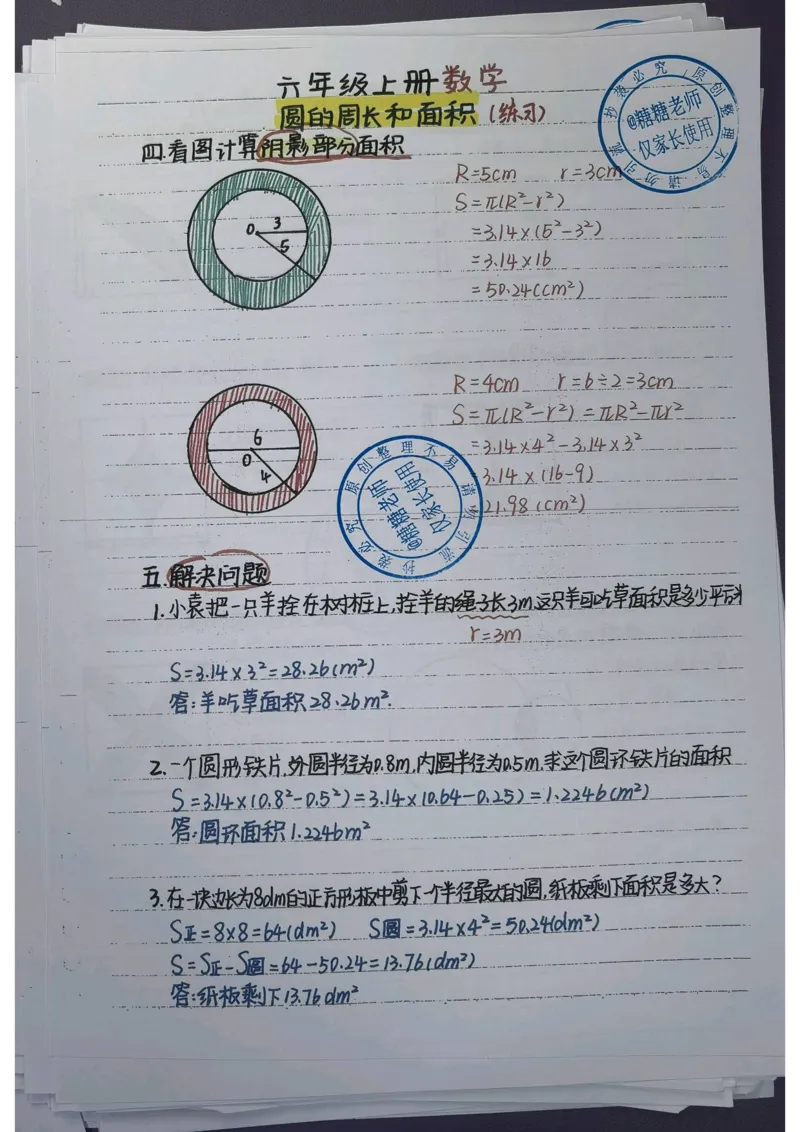 六年级上册数学
圆的周长和面积(练习)
原创整理不易 请勿引流 抄袭必究
@糖糖老师
仅家长使用
四.看图计算阴影部分面积
0 3
5
R=5cm r=3cm
S=π(R²-r²)
=3.14×(5²-3²)
=3.14×16
=50.24(cm²)
6
0
4
R=4cm r=6÷2=3cm
S=π(R²-r²)=πR²-πr²
=3.14×4²-3.14×3²
3.14×(16-9)
21.98(cm²)
原创整理不易 请勿引流 抄袭必究
@糖糖老师
仅家长使用
五.解决问题
1.小袁把一只羊拴在木树桩上,拴羊的绳子长3m.这只羊可吃草面积是多少平方米
r=3m
S=3.14×3²=28.26(m²)
答:羊吃草面积28.26m².
2.一个圆形铁片,外圆半径为0.8m,内圆半径为0.5m.求这个圆环铁片的面积
S=3.14×(0.8²-0.5²)=3.14×(0.64-0.25)=1.2246(m²)
答:圆环面积1.2246m²
3.在一块边长为8dm的正方形板中剪下一个半径最大的圆,纸板剩下面积是多大?
S正=8×8=64(dm²) S圆=3.14×4²=50.24(dm²)
S=S正-S圆=64-50.24=13.76(dm²)
答:纸板剩下13.76dm²